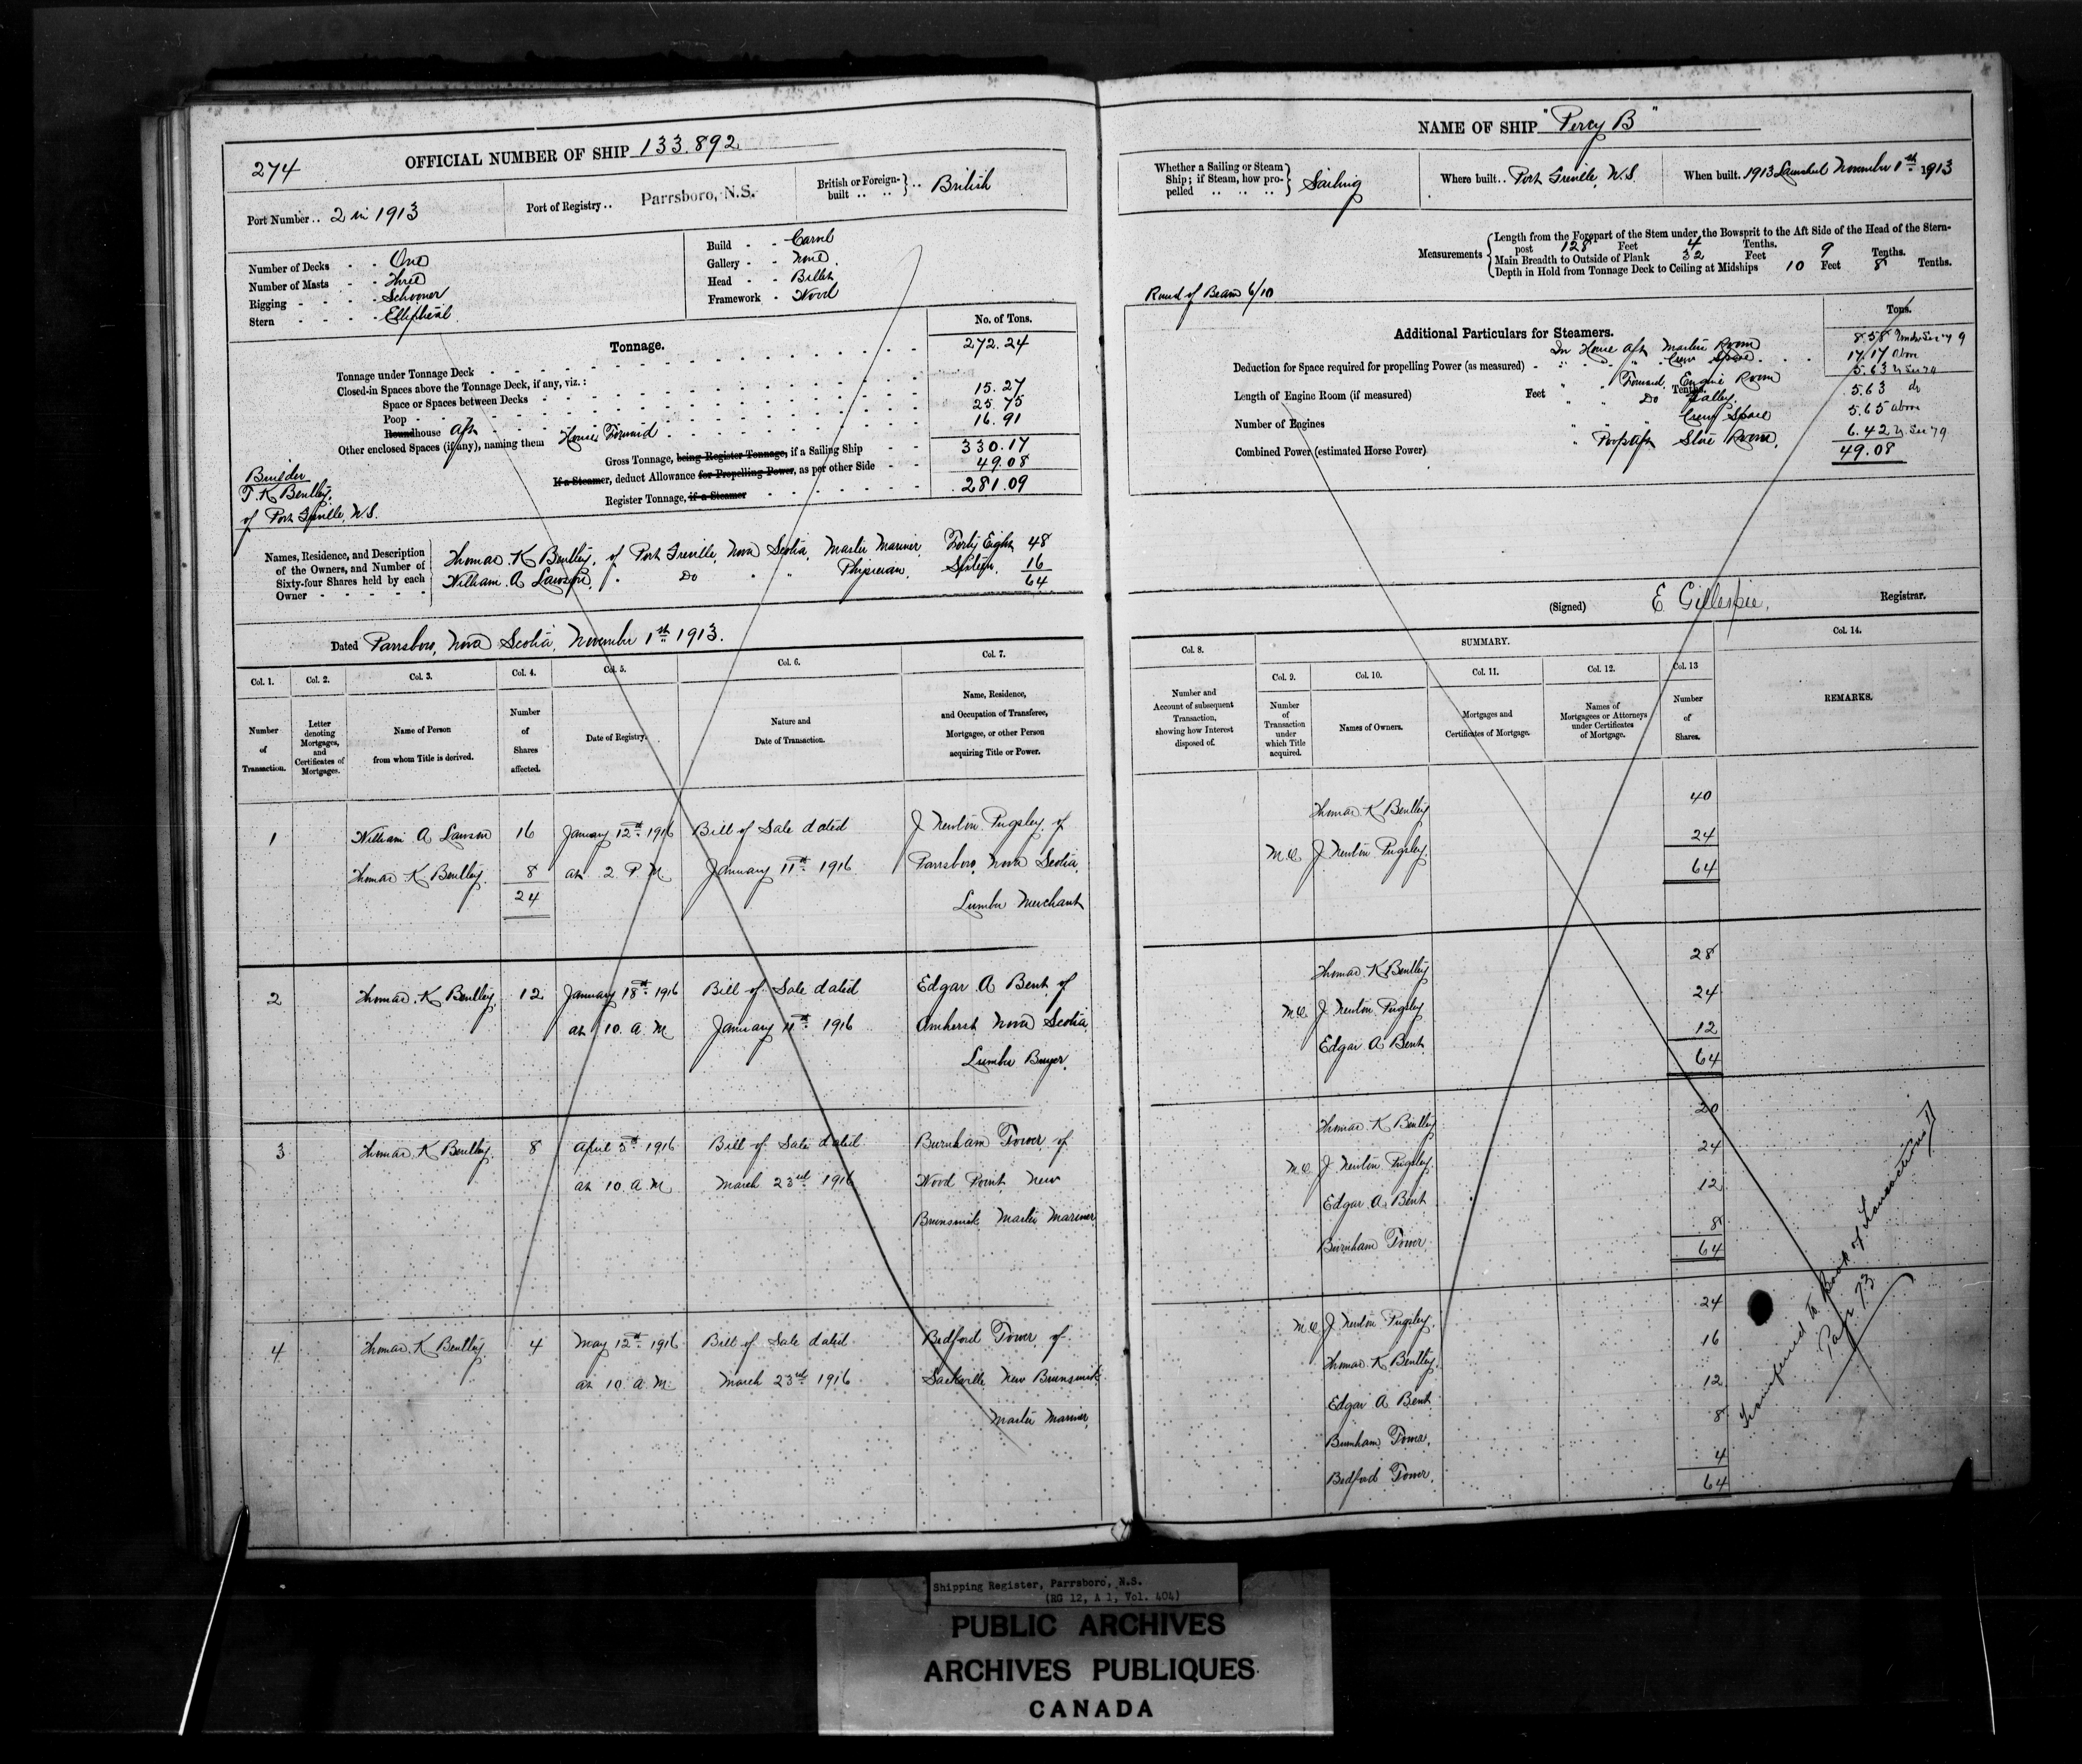 274
OFFICIAL NUMBER OF SHIP 133.892
Port Number .. 2 in 1913
Port of Registry .. Parrsboro, N.S.
British or Foreign-built .. .. British
Number of Decks - - One
Number of Masts - - Three
Rigging - - - - Schooner
Stern - - - - Elliptical
Build - - Carvel
Gallery - - None
Head - - Billet
Framework - Wood
Tonnage.
No. of Tons.
Tonnage under Tonnage Deck 272.24
Closed-in Spaces above the Tonnage Deck, if any, viz.:
Space or Spaces between Decks
Poop 15.27
Roundhouse Aft 25.75
Other enclosed Spaces (if any), naming them House Forward 16.91
Gross Tonnage, being Register Tonnage, if a Sailing Ship 330.17
If a Steamer, deduct Allowance for Propelling Power, as per other Side 49.08
Register Tonnage, if a Steamer 281.09
Builder
T. K. Bentley,
of Port Greville, N.S.
Names, Residence, and Description
of the Owners, and Number of
Sixty-four Shares held by each
Owner - - - - -
Thomas K Bentley, of Port Greville, Nova Scotia, Master Mariner, Forty Eight 48
William A Lawson, " Do " " Physician, Sixteen, 16
64
Dated Parrsboro, Nova Scotia, November 1st 1913.
Col. 1. Col. 2. Col. 3. Col. 4. Col. 5. Col. 6. Col. 7.
Number of Transaction.
Letter denoting Mortgages, and Certificates of Mortgages.
Name of Person from whom Title is derived.
Number of Shares affected.
Date of Registry.
Nature and Date of Transaction.
Name, Residence, and Occupation of Transferee, Mortgagee, or other Person acquiring Title or Power.
1 William A Lawson 16 January 12th 1916 Bill of Sale dated J Newton Pugsley of
Thomas K Bentley. 8 at 2 P.M January 11th 1916 Parrsboro, Nova Scotia,
24 Lumber Merchant
2 Thomas K Bentley, 12 January 18th 1916 Bill of Sale dated Edgar A Bent of
at 10. A.M January 11th 1916 Amherst Nova Scotia,
Lumber Buyer,
3 Thomas K Bentley. 8 April 5th 1916 Bill of Sale dated Burnham Tower of
at 10. A.M March 23rd 1916 Wood Point, New
Brunswick Master Mariner
4 Thomas K Bentley 4 May 12th 1916 Bill of Sale dated Bedford Tower of
at 10. A.M. March 23rd 1916 Sackville New Brunswick
Master Mariner
NAME OF SHIP "Percy B"
Whether a Sailing or Steam Ship; if Steam, how propelled .. .. .. Sailing
Where built .. Port Greville, N.S.
When built. 1913 Launched November 1st 1913
Measurements
Length from the Forepart of the Stem under the Bowsprit to the Aft Side of the Head of the Stern-
post 128 Feet 4 Tenths.
Main Breadth to Outside of Plank 32 Feet 9 Tenths.
Depth in Hold from Tonnage Deck to Ceiling at Midships 10 Feet 8 Tenths.
Round of Beam 6/10
Additional Particulars for Steamers.
Tons.
In House Aft Master Room 8.58 Under Sec 79
Deduction for Space required for propelling Power (as measured) - " " " Crew Space 17.17 Above
5.63
Length of Engine Room (if measured) Feet Tenths.
" " Forward, Engine Room 5.63 do
" " Do Galley, 5.65 above
Number of Engines
Crew Space
Combined Power (estimated Horse Power)
" Poop Aft Store Room, 6.42 Sec 79
49.08
(Signed) E Gillespie, Registrar.
Col. 8. SUMMARY. Col. 14.
Col. 9. Col. 10. Col. 11. Col. 12. Col. 13
Number and Account of subsequent Transaction, showing how Interest disposed of.
Number of Transaction under which Title acquired.
Names of Owners.
Mortgages and Certificates of Mortgage.
Names of Mortgagees or Attorneys under Certificates of Mortgage.
Number of Shares.
REMARKS.
Thomas K Bentley 40
M.O. J Newton Pugsley. 24
64
Thomas K Bentley 28
M.O. J Newton Pugsley 24
Edgar A Bent. 12
64
Thomas K Bentley 20
M.O. J Newton Pugsley. 24
Edgar A Bent 12
Burnham Tower. 8
64
M.O. J Newton Pugsley. 24
Thomas K Bentley, 16
Edgar A Bent. 12
Burnham Tower, 8
Bedford Tower, 4
64
Transferred to Book of Transactions
Page 73
Shipping Register, Parrsboro, N.S.
(RG 12, A 1, Vol. 404)
PUBLIC ARCHIVES
ARCHIVES PUBLIQUES
CANADA